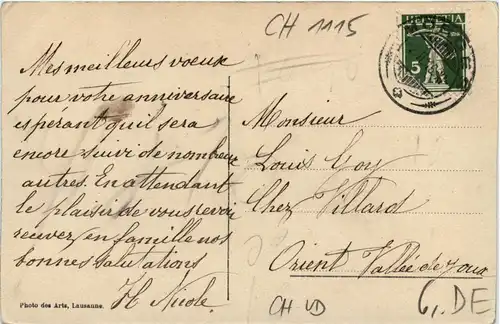 CH 1115
HELVETIA
5
Mes meilleurs voeux
pour votre anniversaire
esperant qu'il sera
encore suivi de nombreux
autres. En attendant
le plaisir de vous revoir
recevez en famille nos
bonnes salutations
H Nicole
Monsieur
Louis Goy
Chez Villard
Orient Vallée de Joux
Photo des Arts, Lausanne.
CH VD
6,. DE